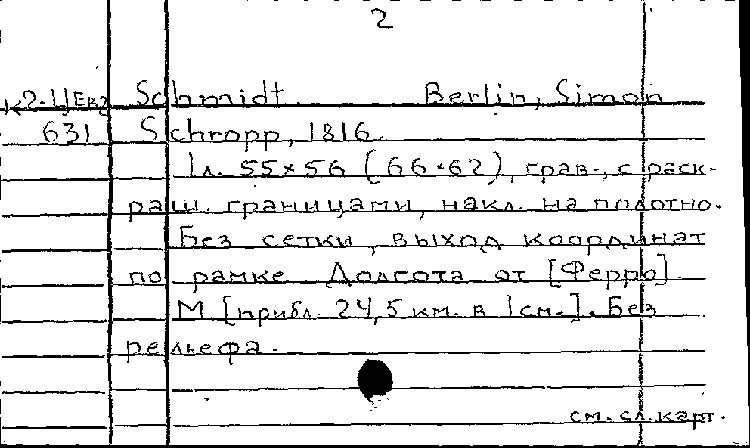 2
К2-Ц/Евр Schmidt. Berlin, Simon
631 Schropp, 1816.
1л. 55×56 (66×62), грав., с раск-
раш. границами, накл. на полотно.
Без сетки, выход координат
по рамке Долгота от [Ферро]
М [прибл. 24,5 км. в 1см.]. Без
рельефа.
см. сл. карт.